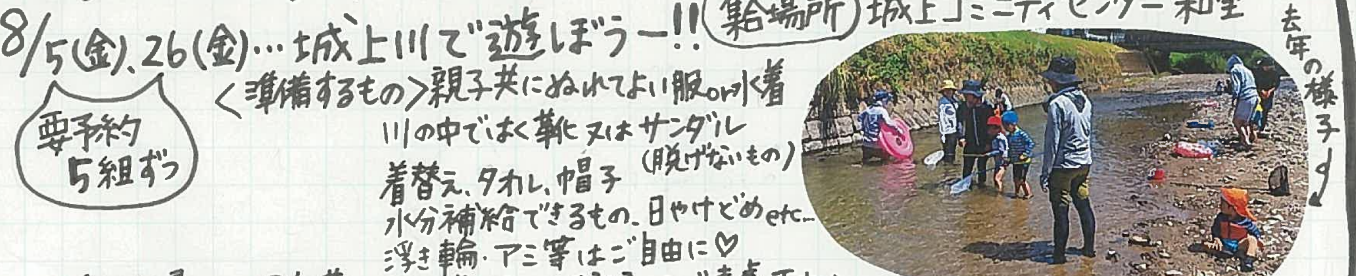 8/5(金)、26(金)…城上川で遊ぼうー!!
集合場所 城上コミニティセンター和室
要予約
5組ずつ
<準備するもの>親子共にぬれてよい服or水着
川の中ではく靴又はサンダル
(脱げないもの)
着替え、タオル、帽子
水分補給できるもの、日やけどめetc...
浮き輪・アミ等はご自由に♡
去年の様子